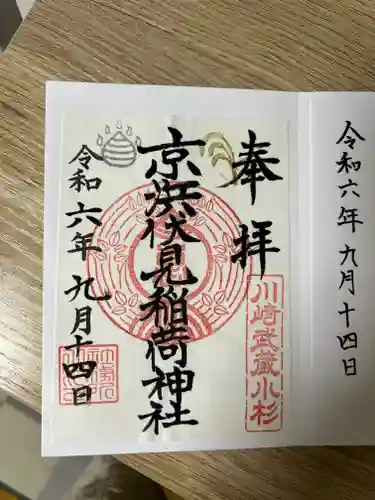 令和六年九月十四日
奉拝
川崎武蔵小杉
京濱伏見稲荷神社
令和六年九月十四日